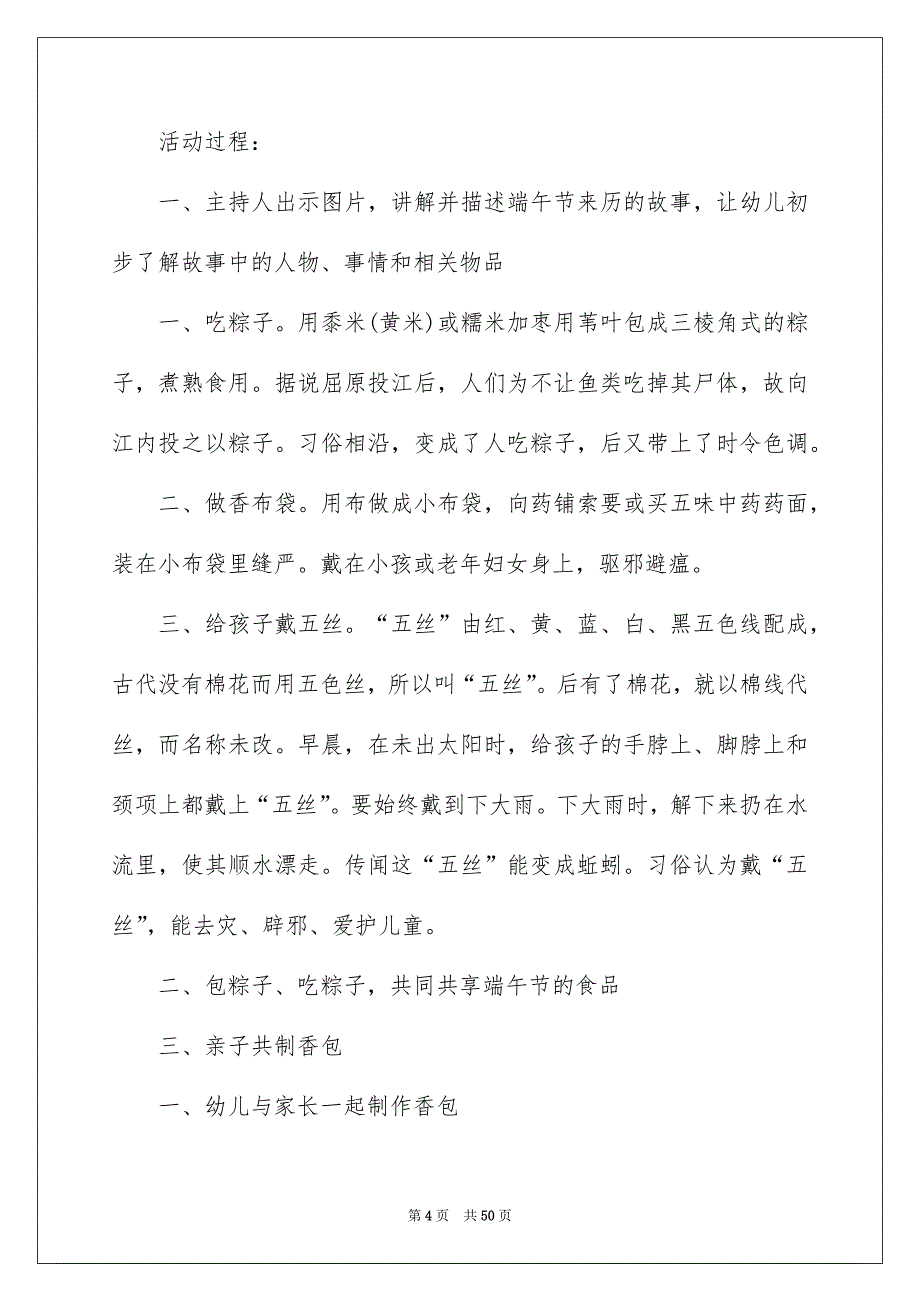 活动过程：
一、主持人出示图片，讲解并描述端午节来历的故事，让幼儿初
步了解故事中的人物、事情和相关物品
一、吃粽子。用黍米(黄米)或糯米加枣用苇叶包成三棱角式的粽
子，煮熟食用。据说屈原投江后，人们为不让鱼类吃掉其尸体，故向
江内投之以粽子。习俗相沿，变成了人吃粽子，后又带上了时令色调。
二、做香布袋。用布做成小布袋，向药铺索要或买五味中药药面，
装在小布袋里缝严。戴在小孩或老年妇女身上，驱邪避瘟。
三、给孩子戴五丝。“五丝”由红、黄、蓝、白、黑五色线配成，
古代没有棉花而用五色丝，所以叫“五丝”。后有了棉花，就以棉线代
丝，而名称未改。早晨，在未出太阳时，给孩子的手脖上、脚脖上和
颈项上都戴上“五丝”。要始终戴到下大雨。下大雨时，解下来扔在水
流里，使其顺水漂走。传闻这“五丝”能变成蚯蚓。习俗认为戴“五
丝”，能去灾、辟邪、爱护儿童。
二、包粽子、吃粽子，共同共享端午节的食品
三、亲子共制香包
一、幼儿与家长一起制作香包
第 4 页 共 50 页